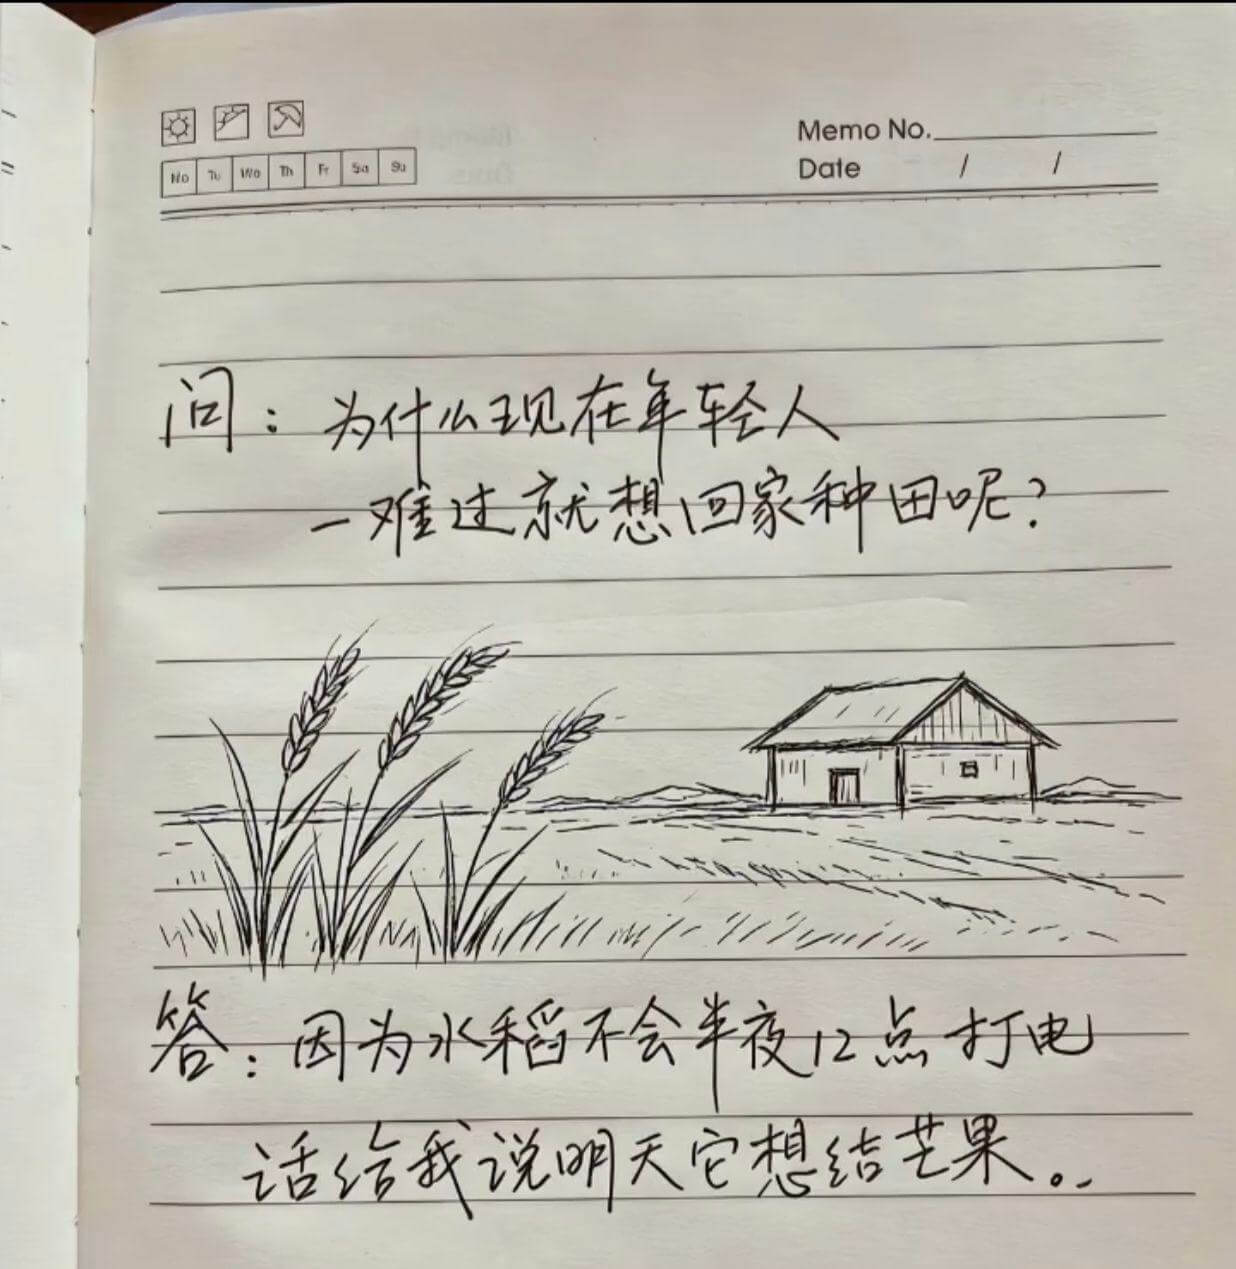 Memo No.
Mo Tu We Th Fr Sa Su
Date / /
问：为什么现在年轻人
一难过就想回家种田呢？
答：因为水稻不会半夜12点打电
话给我说明天它想结芒果。.